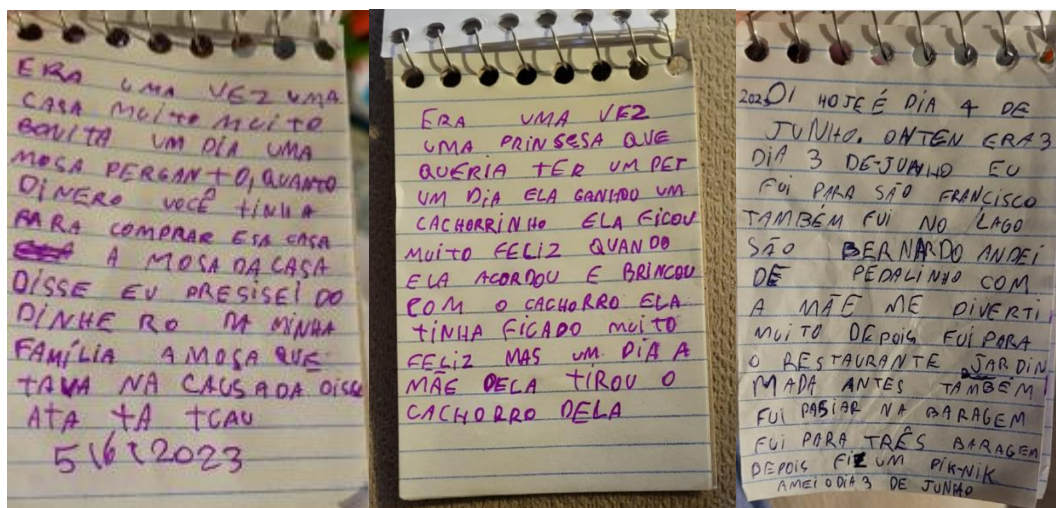 ERA UMA VEZ UMA
CASA MUITO MUITO
BONITA UM DIA UMA
MOSA PERGANTO, QUANTO
DINERO VOCÊ TINHA
PARA COMPRAR ESA CASA
A MOSA DA CASA
DISSE EU PRESISEI DO
DINHE RO DA MINHA
FAMÍLIA A MOSA QUE
TAVA NA CAUSADA DISSE
ATA TA TCAU
5\6\2023
ERA UMA VEZ
UMA PRINSESA QUE
QUERIA TER UM PET
UM DIA ELA GANHOU UM
CACHORRINHO ELA FICOU
MUITO FELIZ QUANDO
ELA ACORDOU E BRINCOU
COM O CACHORRO ELA
TINHA FICADO MUITO
FELIZ MAS UM DIA A
MÃE DELA TIROU O
CACHORRO DELA
2023 OI HOJE É DIA 4 DE
JUNHO. ONTEN ERA 3
DIA 3 DE-JUNHO EU
FUI PARA SÃO FRANCISCO
TAMBÉM FUI NO LAGO
SÃO BERNARDO ANDEI
DE PEDALINHO COM
A MÃE ME DIVERTI
MUITO DEPOIS FUI PARA
O RESTAURANTE JARDIN
MADA ANTES TAMBÉM
FUI PASIAR NA BARAGEM
FUI PARA TRÊS BARAGEM
DEPOIS FIZ UM PIK-NIK
AMEI O DIA 3 DE JUNHO